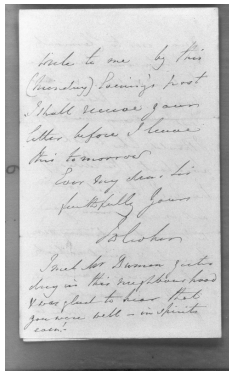 write to me by this
(Monday) Evening's post
I shall receive your
letter before I leave
this tomorrow
Ever my dear Sir
faithfully Yours
I met Mr
day in this neighbourhood
& was glad to hear that
you were well – in spirits
even!